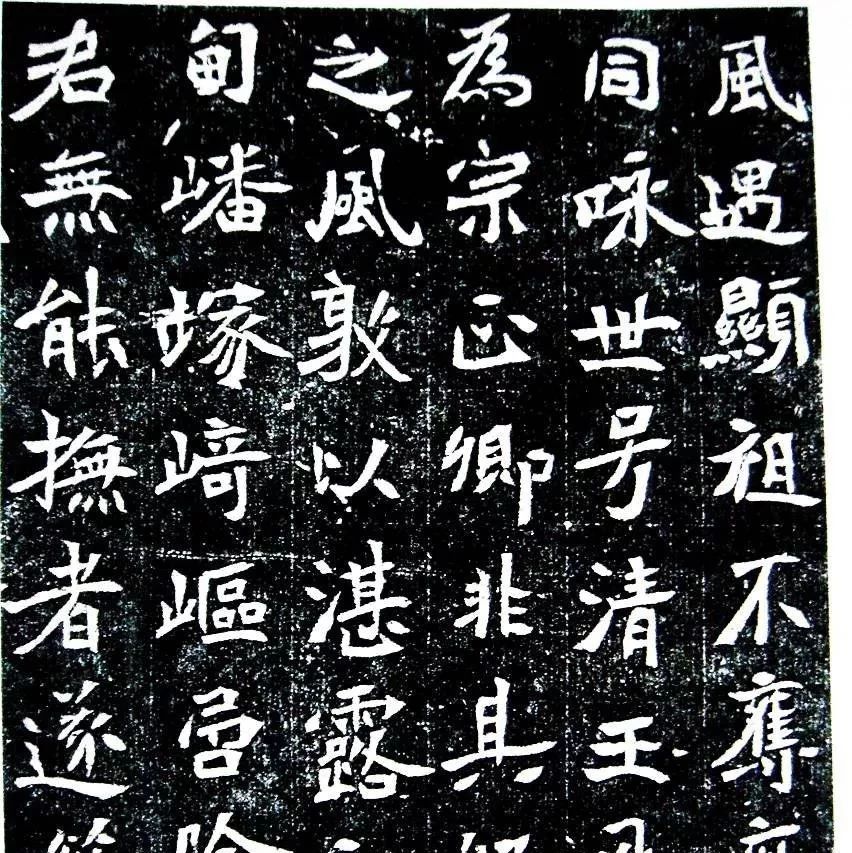 風遇顯祖不奪
同咏世号清王
為宗正卿非其
之風敦以湛露
甸嶓塚崎嶇嵒
君無能撫者遂